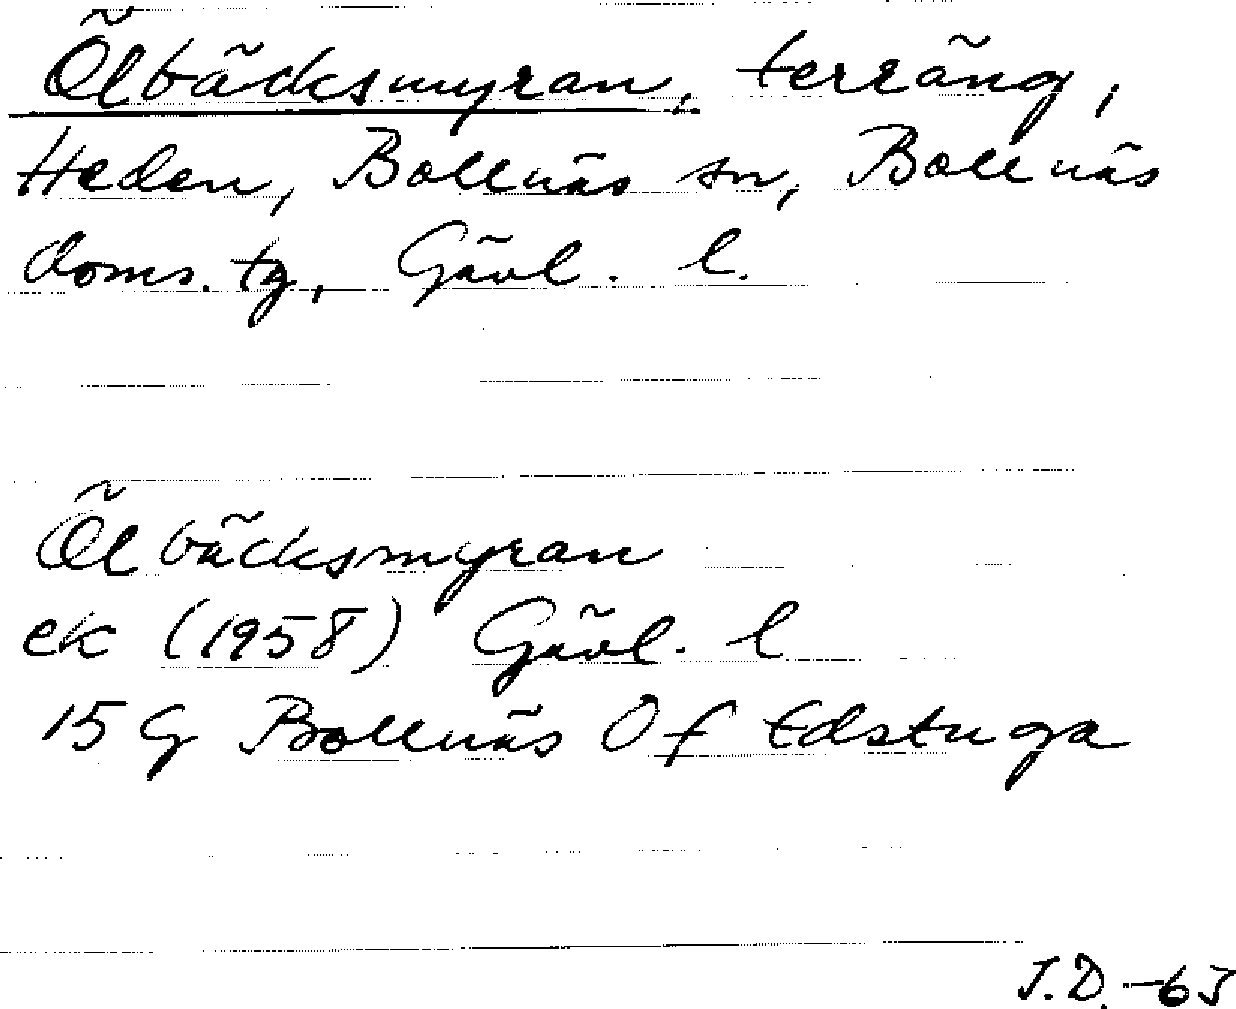 Ölbäcksmyran, terräng,
Heden, Bollnäs sn, Bollnäs
doms. tg, Gävl. l.
Ölbäcksmyran
ek (1958) Gävl. l
15 G Bollnäs Of Edstuga
I.D. -63